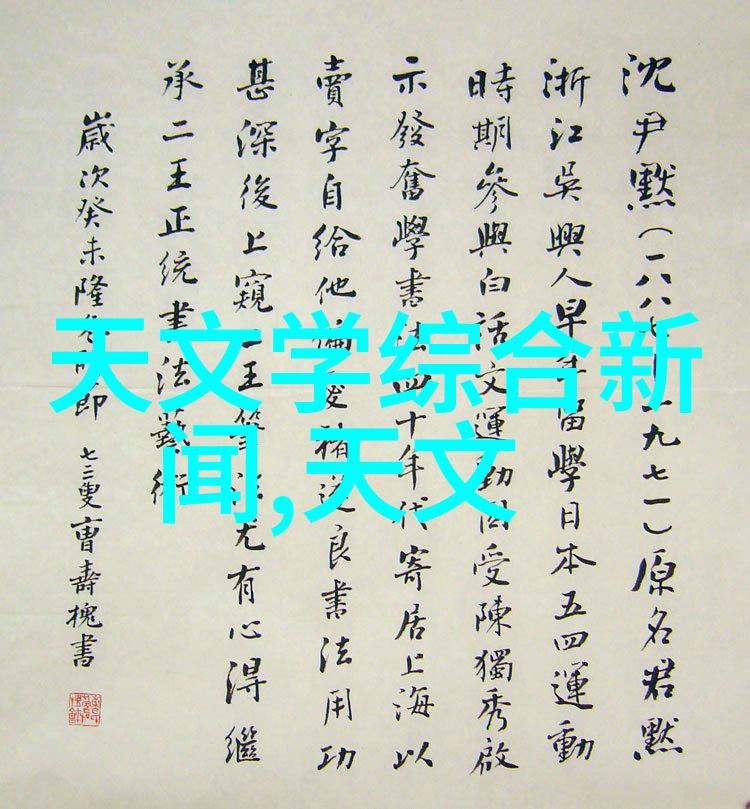 沈尹默(一八八七—一九七一)原名君默
浙江吳興人早年留學日本五四運動
時期參與白話文運動因受陳獨秀啟
示發奮學書法四十年代寄居上海以
賣字自給他褚遂良書法用功
甚深後上窺二王筆法尤有心得繼
承二王正统書法藝術
歲次癸未隆冬即
七二叟曹壽槐書
天文学综合新
闻,天文